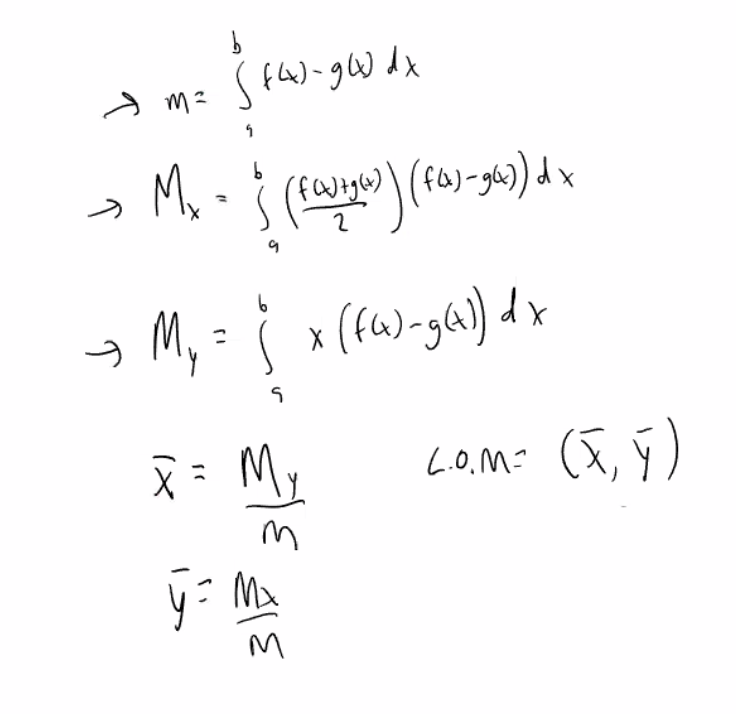 → m = ∫_a^b f(x) - g(x) dx
→ M_x = ∫_a^b ((f(x)+g(x))/2) (f(x)-g(x)) dx
→ M_y = ∫_a^b x (f(x)-g(x)) dx
x̄ = M_y/m    C.O.M = (x̄, ȳ)
ȳ = M_x/m